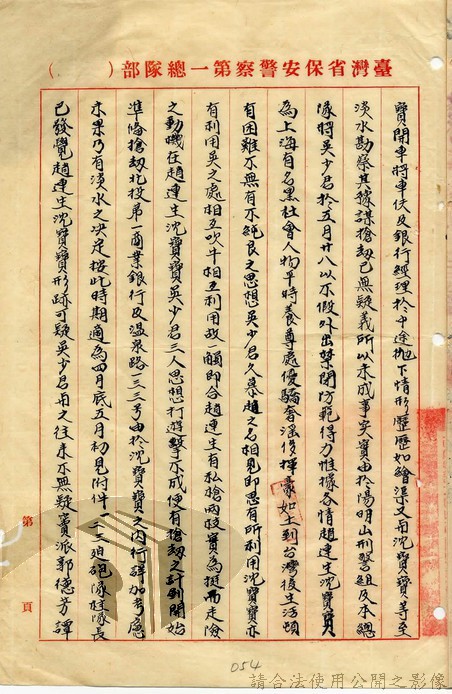 臺灣省保安警察第一總隊部（　）
寶開車將車伕及銀行經理於中途拋下情形歷歷如繪渠又與沈寶寶等至
淡水勘察其謀搶劫已無疑義所以未成事實由於陽明山刑警組及本總
隊將吳少君於五月廿八以不假外出禁閉防範得力惟據各情趙連生沈寶寶
為上海有名黑社會人物平時養尊處優驕奢淫侈揮豪如土到台灣後生活頓
有困難不無有不純良之思想吳少君久慕趙之名相見即思有所利用沈寶寶亦
有利用吳之處相互吹牛相互利用故一觸即合趙連生有私槍兩枝實為挺而走險
之動機在趙連生沈寶寶吳少君三人思想打游擊不成便有搶劫之計劃開始
準備搶劫北投第一商業銀行及溫泉路一三三号由於沈寶寶之內行詳加考慮
未果乃有淡水之決定按此時期適為四月底五月初見附件二三迫砲隊隊長
已發覺趙連生沈寶寶形跡可疑吳少君与之往來不無疑竇派郭德芳譚
第　頁
054
請合法使用公開之影像